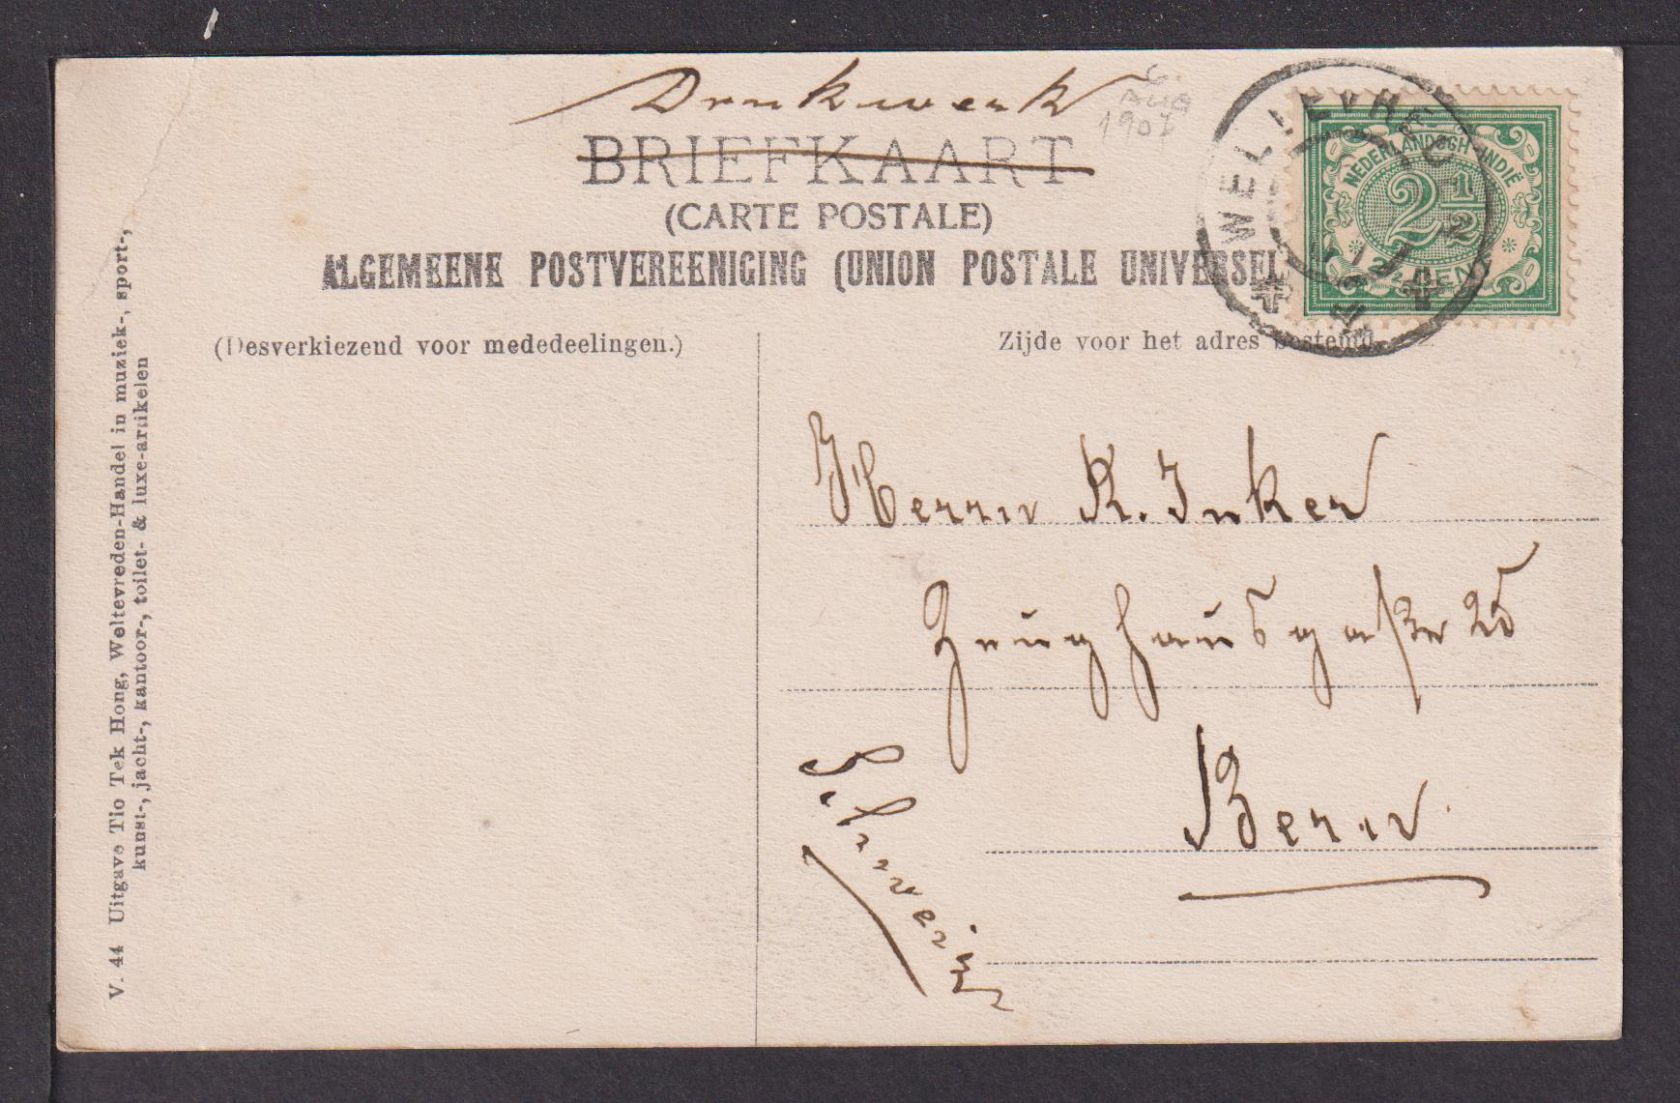 Drukwerk
6.
AUG
1907
BRIEFKAART
(CARTE POSTALE)
ALGEMEENE POSTVEREENIGING (UNION POSTALE UNIVERSEL
NEDERLANDSCH-INDIË
2 1/2
CENT
(Desverkiezend voor mededeelingen.)
Zijde voor het adres bestemd.
Herrn R. Inker
Zeughausgaße 25
Bern
Schweiz
V. 44 Uitgave Tio Tek Hong, Weltevreden-Handel in muziek-, sport-,
kunst-, jacht-, kantoor-, toilet- & luxe-artikelen